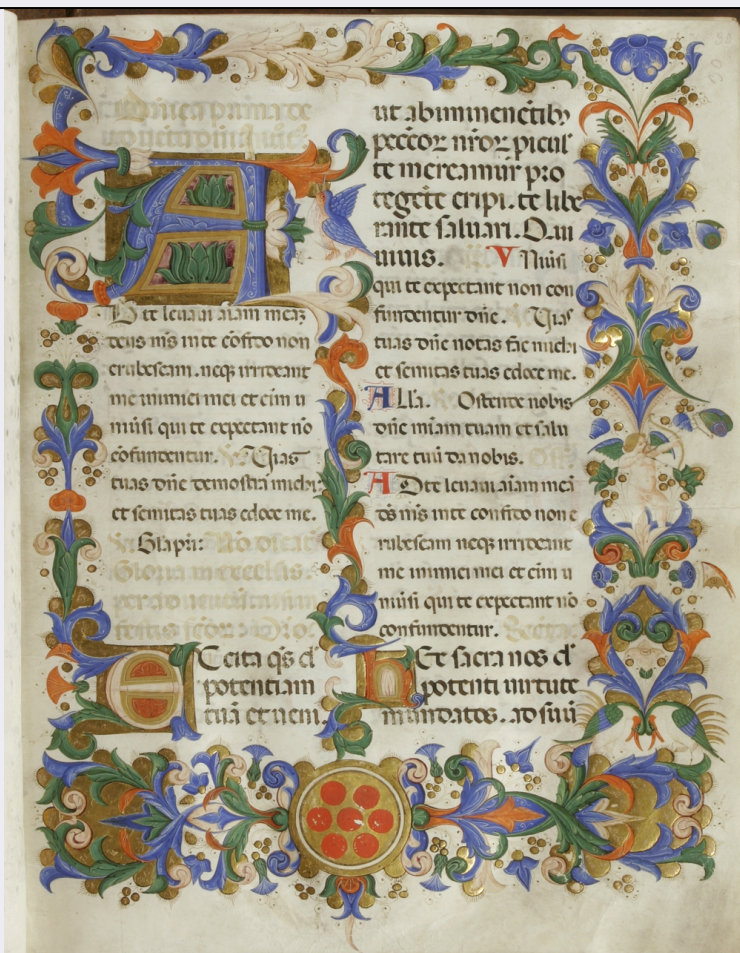 A
D te leuaui aīam meā
deus m̄s in te cōfido non
erubescam. neq irrideant
me inimici mei et eīm u
niūsi qui te expectant nō
cōfundentur. Uias
tuas dn̄e demōstra michi
et semitas tuas edoce me.
Gl̄a pr̄i:
E
Xcita q̄s d̄
potentiam
tuā et ueni.
ut ab iminentib⁊
peccoꝝ nr̄oꝝ picul
te mereamur pro
tegēte eripi. te libe
rante saluari. Q ui
uiuis. V Niūsi
qui te expectant non con
fundentur dn̄e. Uias
tuas dn̄e notas fac michi
et semitas tuas edoce me.
ALl̄a. Ostende nobis
dn̄e mīam tuam et salu
tare tuū da nobis.
AD te leuaui aīam meā
ds̄ m̄s in te confido non e
rubescam neq irrideant
me inimici mei et eīm u
niūsi qui te expectant nō
confundentur.
H
Ec sacra nos d̄
potenti uirtute
mundatos. ad suū